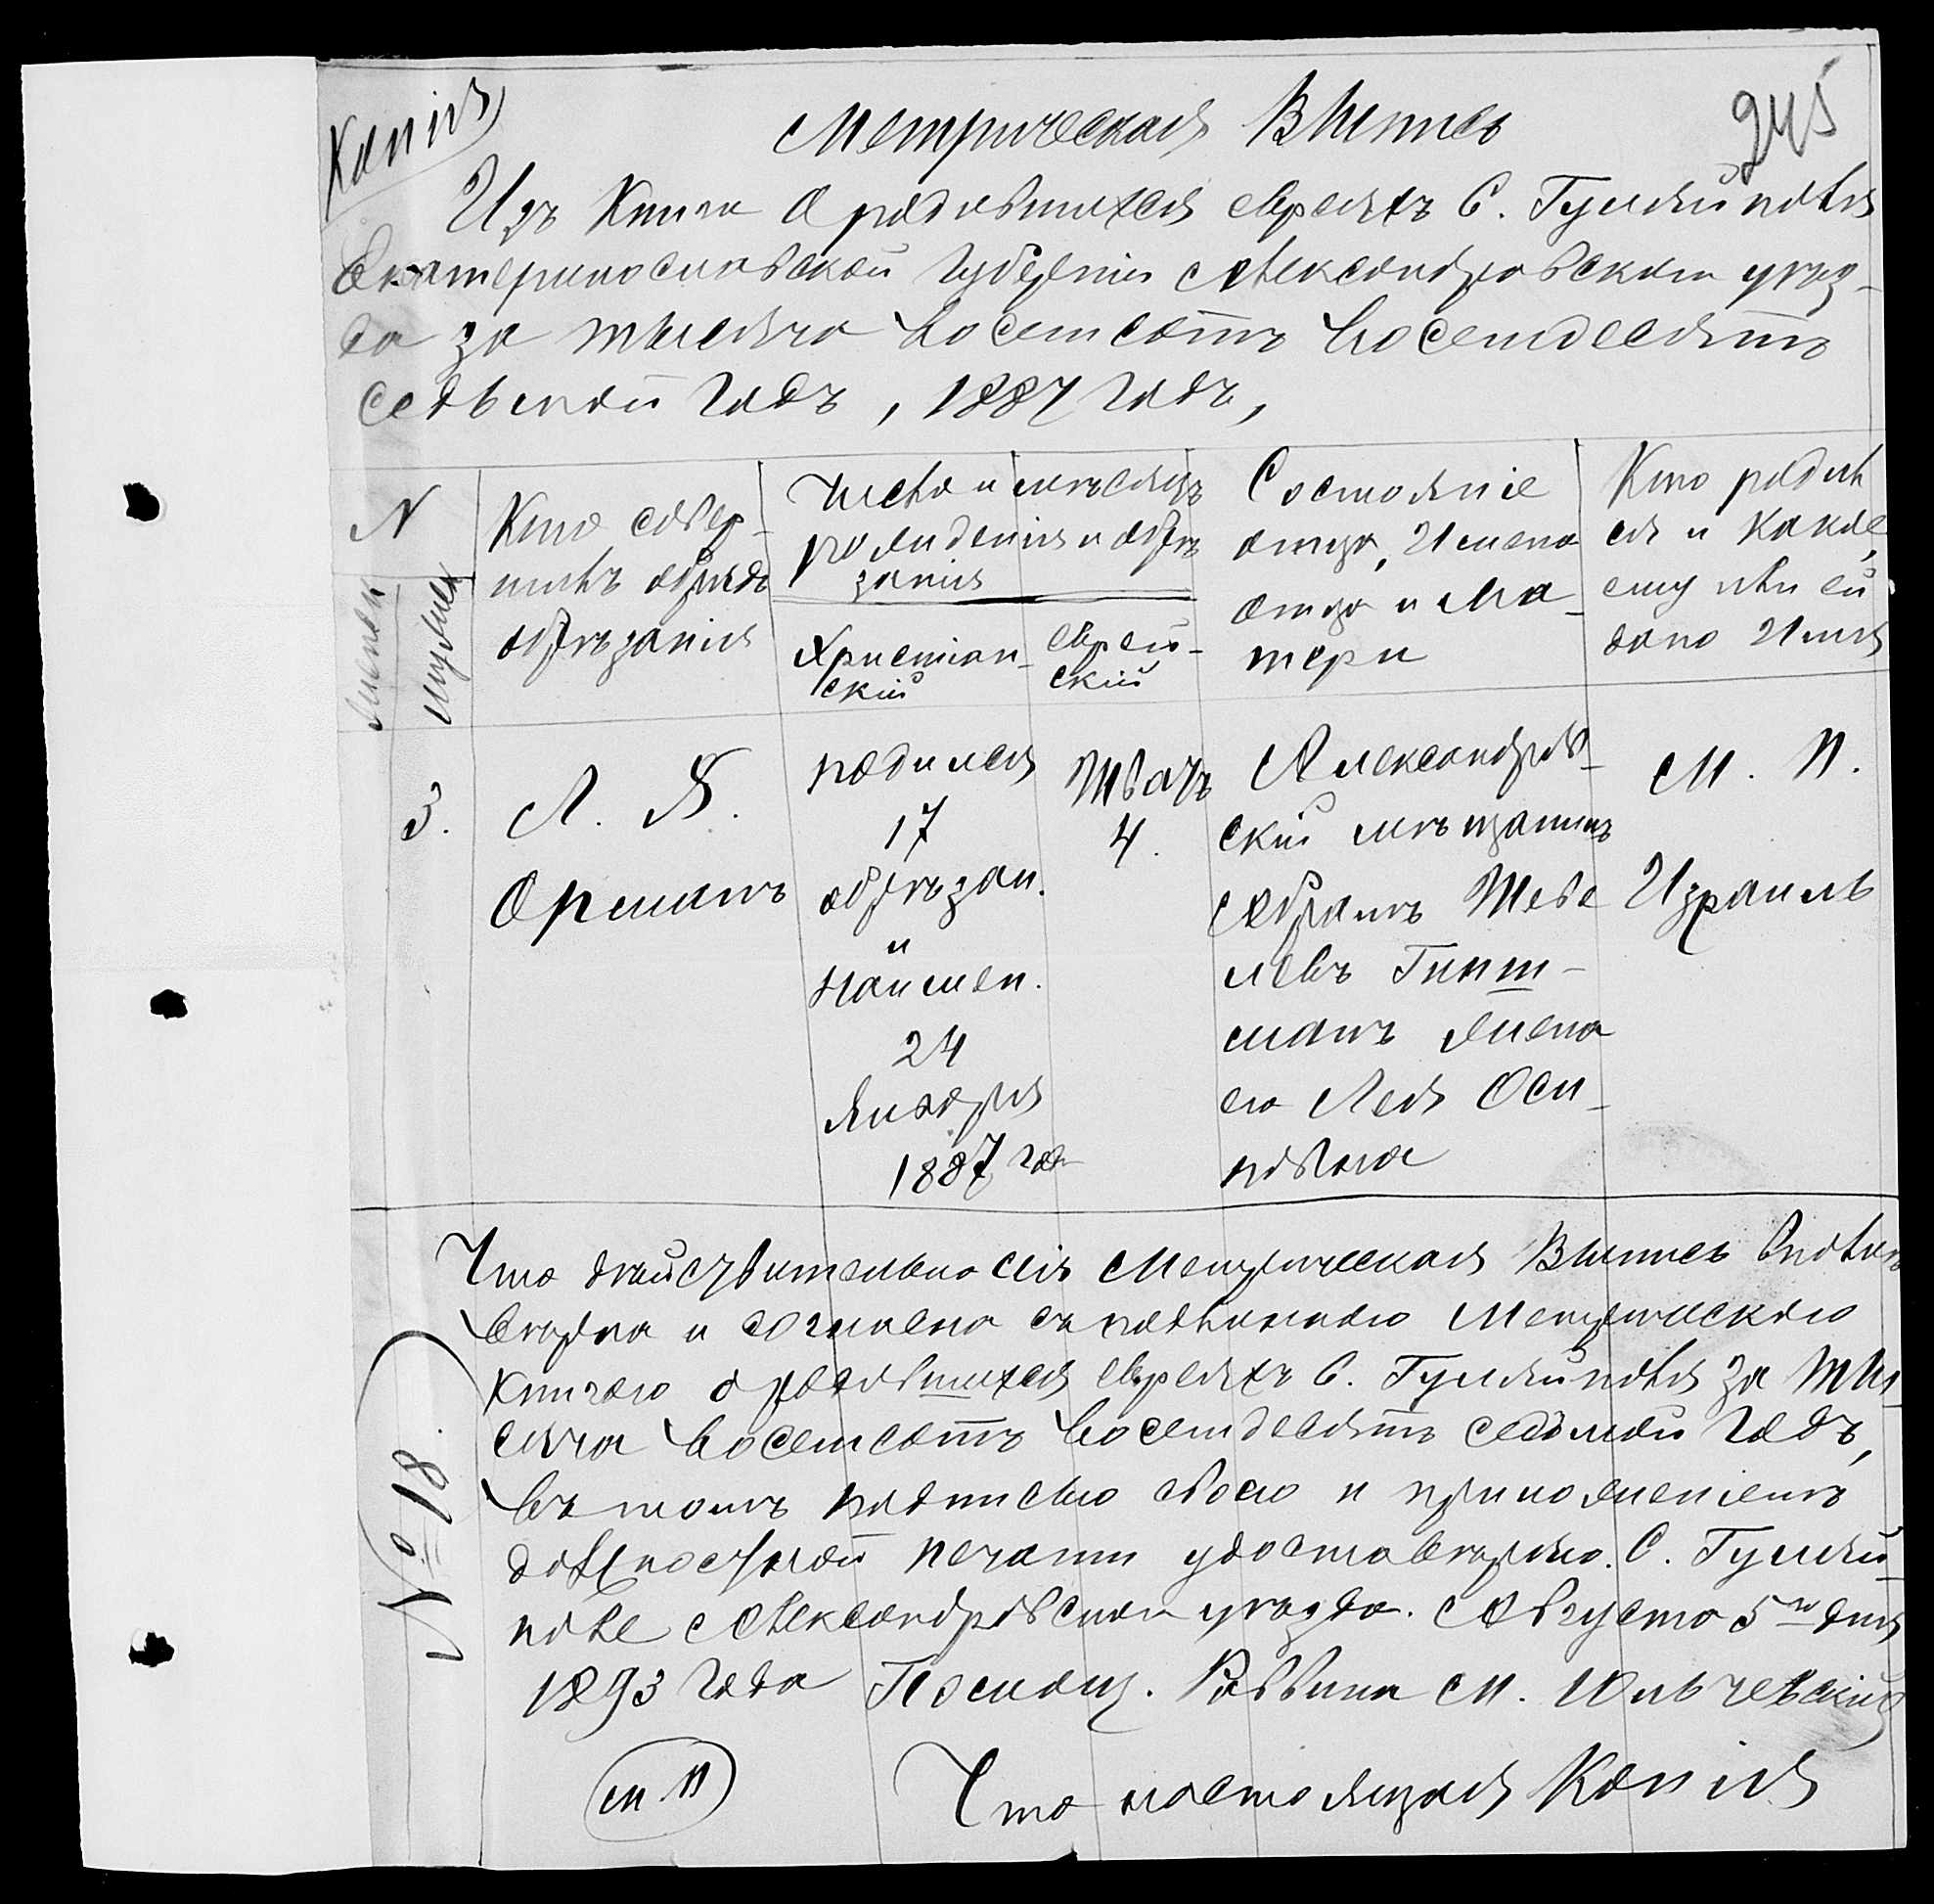 Копія
245
Метрическая Выпись
Изъ Книги о родившихся евреяхъ С. Гуляйполя
Екатеринославской губерніи Александровскаго уѣз-
да за тысяча восемсотъ восемдесятъ
седьмой годъ, 1887 годъ,
N
Женск
Мужеск
Кто совер-
шилъ обрядъ
обрѣзанія
Число и мѣсяцъ
рожденія и обрѣ
занія
Христіан-
скій
еврей-
скій
Состояніе
отца, Имена
отца и Ма-
тери
Кто родил
ся и какое
ему или ей
дано Имя
3.
Л. Я.
Орманъ
родился
17
обрѣзан.
и
наимен.
24
Января
1887 год
Швать
4.
Александров-
скій мѣщанинъ
Абрамъ Шеве
левъ Гинш-
манъ жена
его Лея Оси-
повна
М. П.
Израиль
№ 18.
Что дѣйствительно сія Метрическая Выпись вполнѣ
вѣрна и согласна съ подлинною Метрическою
книгою о родившихся евреяхъ С. Гуляйполя за ты-
сяча восемсотъ восемдесятъ седьмой годъ,
въ томъ подписью своею и приложеніемъ
должностной печати удостовѣряю. С. Гуляй-
поле Александровскаго уѣзда. Августа 5го дня
1893 года Помощ. Раввина М. Юльчевскій
М П
Что настоящая Копія